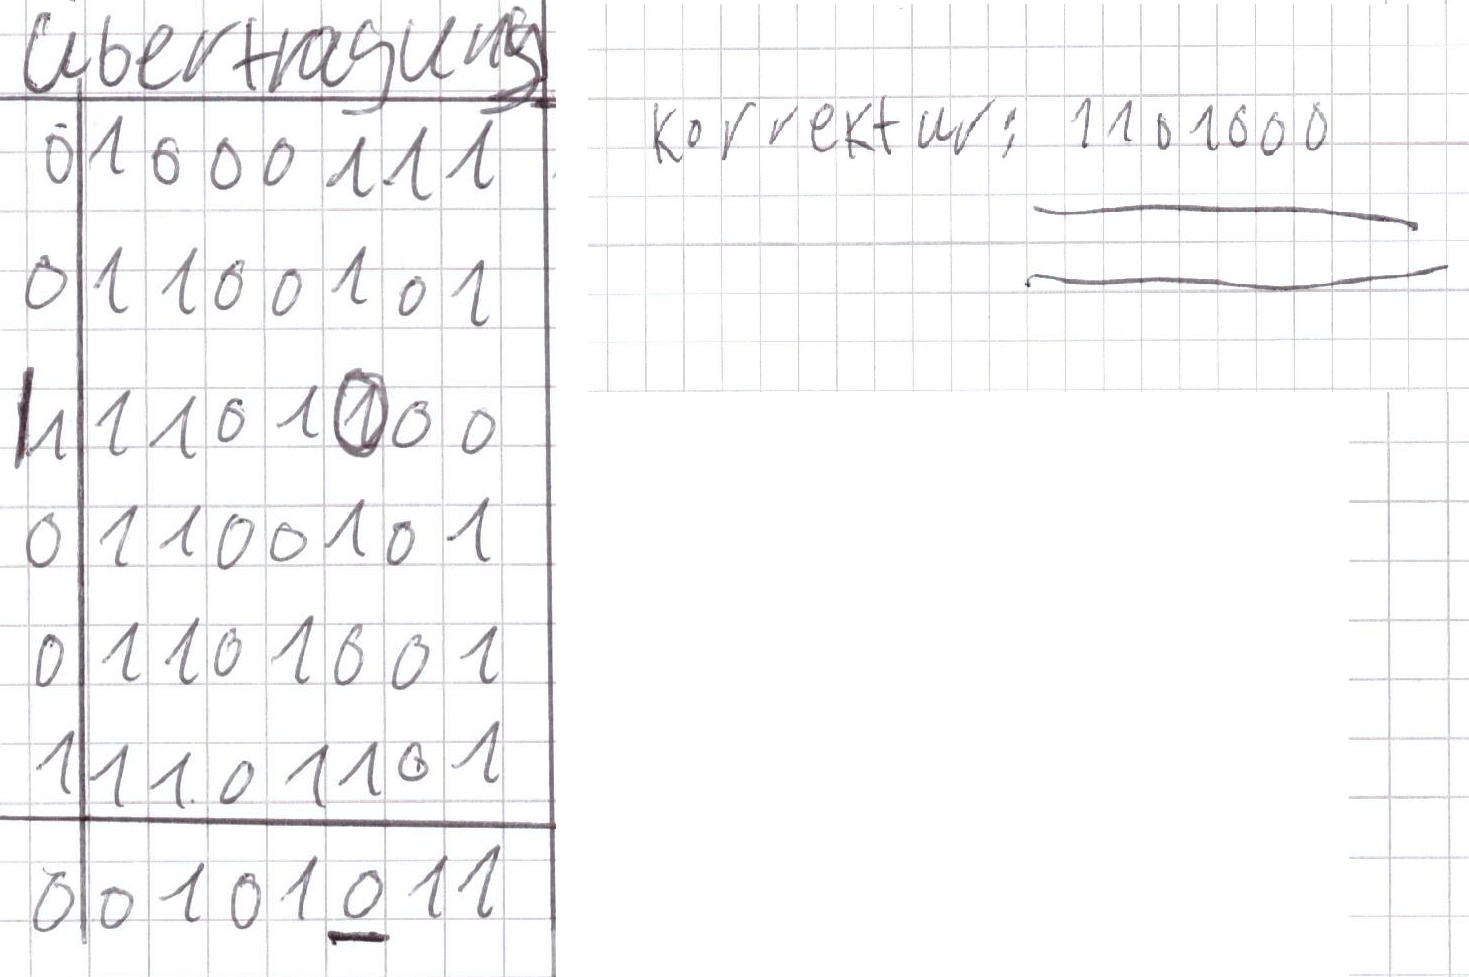 Übertragung
0 1 0 0 0 1 1 1
0 1 1 0 0 1 0 1
1 1 1 0 1 1 0 0
0 1 1 0 0 1 0 1
0 1 1 0 1 0 0 1
1 1 1 0 1 1 0 1
0 0 1 0 1 0 1 1
Korrektur: 1101000